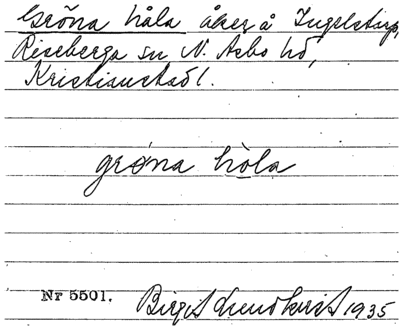 Gröna håla åker å Ingelstorp,
Riseberga sn N. Åsbo hd,
Kristianstad l.
grøna hòla
Nr 5501. Birgit Lundkvist 1935